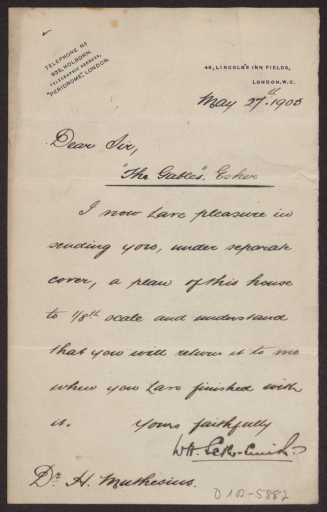 TELEPHONE Nº
939, HOLBORN.
TELEGRAPHIC ADDRESS,
"PERIDROME," LONDON.
46, LINCOLN'S INN FIELDS,
LONDON, W.C.
May 27th 1903
Dear Sir,
"The Gables", Esher
I now have pleasure in
sending you, under separate
cover, a plan of this house
to 1/8th scale and understand
that you will return it to me
when you have finished with
it. Yours faithfully
Dr H. Muthesius.
D 102-5882